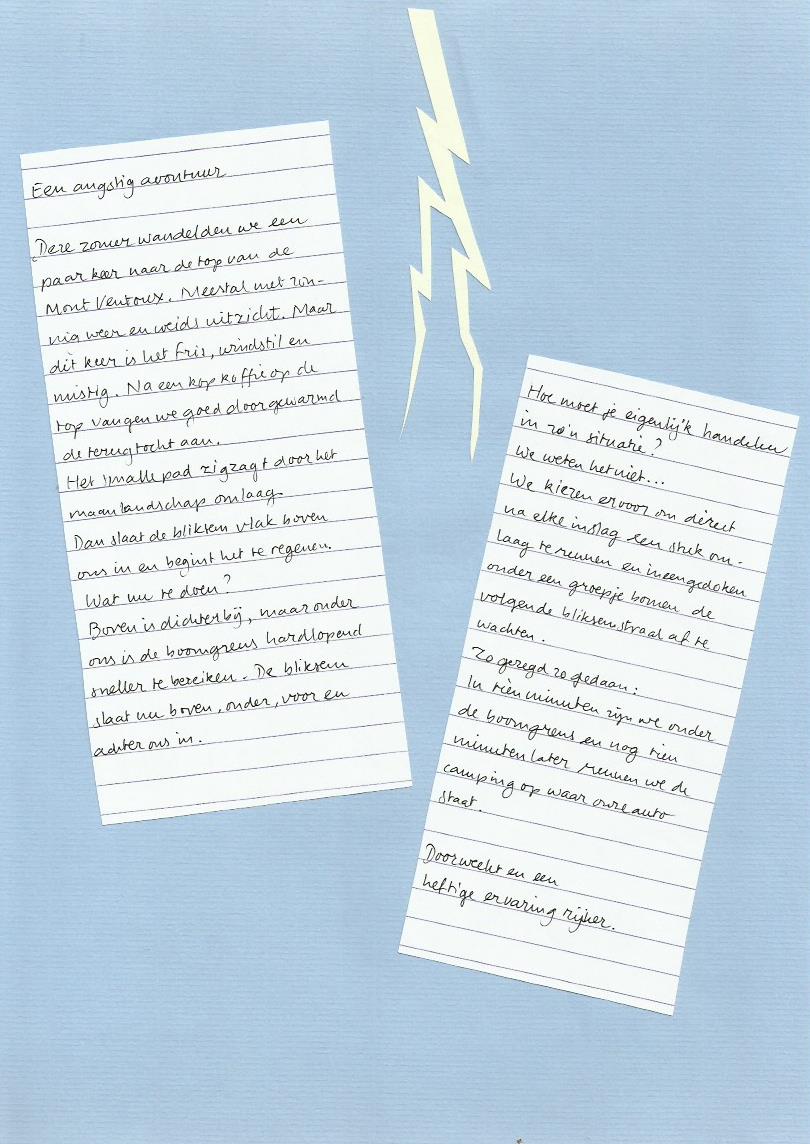 Een angstig avontuur
Deze zomer wandelden we een
paar keer naar de top van de
Mont Ventoux. Meestal met zon-
nig weer en weids uitzicht. Maar
dit keer is het fris, windstil en
mistig. Na een kop koffie op de
top vangen we goed doorgewarmd
de terugtocht aan.
Het smalle pad zigzagt door het
maanlandschap omlaag
Dan slaat de bliksem vlak boven
ons in en begint het te regenen.
Wat nu te doen?
Boven is dichterbij, maar onder
ons is de boomgrens hardlopend
sneller te bereiken. De bliksem
slaat nu boven, onder, voor en
achter ons in.
Hoe moet je eigenlijk handelen
in zo'n situatie?
We weten het niet...
We kiezen ervoor om direct
na elke inslag een stuk om-
laag te rennen en ineengedoken
onder een groepje bomen de
volgende bliksemstraal af te
wachten.
Zo gezegd zo gedaan:
In tien minuten zijn we onder
de boomgrens en nog tien
minuten later rennen we de
camping op waar onze auto
staat.
Doorweekt en een
heftige ervaring rijker.